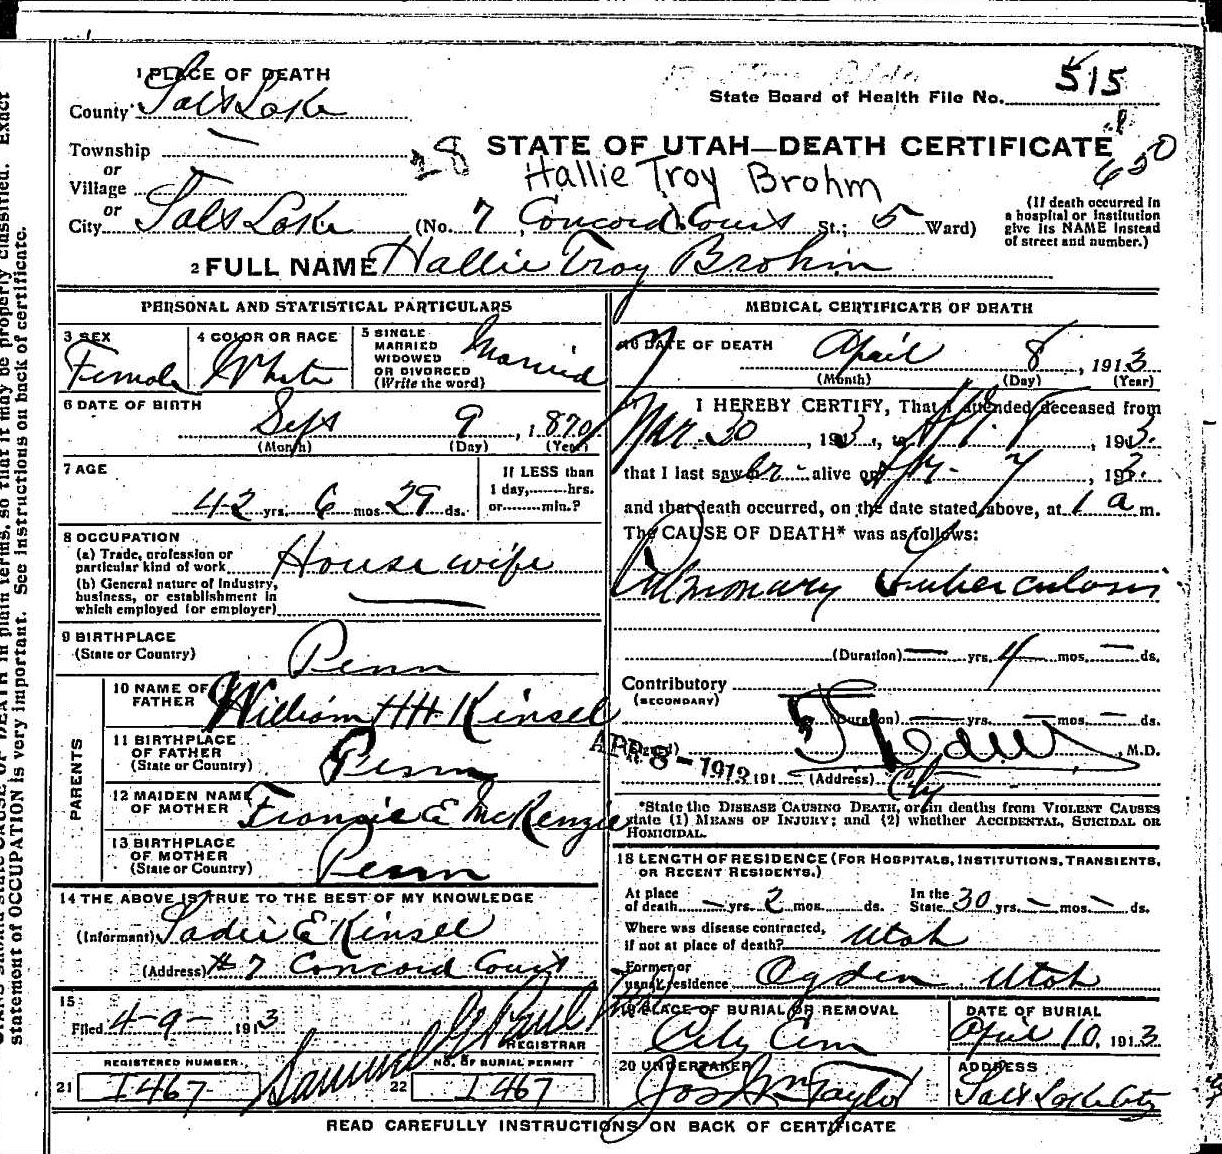 1 PLACE OF DEATH
County Salt Lake
State Board of Health File No. 515
Township
or
Village
28
STATE OF UTAH—DEATH CERTIFICATE
Hallie Troy Brohm
or
City Salt Lake (No. 7 Concord Court St.; 5 Ward)
(If death occurred in a hospital or institution give its NAME instead of street and number.)
2 FULL NAME Hallie Troy Brohm
PERSONAL AND STATISTICAL PARTICULARS
3 SEX Female
4 COLOR OR RACE White
5 SINGLE MARRIED WIDOWED OR DIVORCED (Write the word) Married
6 DATE OF BIRTH
Sept 9, 1870
(Month) (Day) (Year)
7 AGE
42 yrs. 6 mos. 29 ds.
If LESS than 1 day, hrs. or min.?
8 OCCUPATION
(a) Trade, profession or particular kind of work Housewife
(b) General nature of industry, business, or establishment in which employed (or employer)
9 BIRTHPLACE
(State or Country) Penn
PARENTS
10 NAME OF FATHER William HH Kinsel
11 BIRTHPLACE OF FATHER (State or Country) Penn
12 MAIDEN NAME OF MOTHER Francie E McKenzie
13 BIRTHPLACE OF MOTHER (State or Country) Penn
14 THE ABOVE IS TRUE TO THE BEST OF MY KNOWLEDGE
(Informant) Sadie E Kinsel
(Address) # 7 Concord Court
15
Filed 4-9- 1913
Samuel G Paul
REGISTRAR
REGISTERED NUMBER.
21 1467
NO. OF BURIAL PERMIT
22 1467
MEDICAL CERTIFICATE OF DEATH
16 DATE OF DEATH
April 8, 1913
(Month) (Day) (Year)
I HEREBY CERTIFY, That I attended deceased from
Mar 30, 1913, to Ap. 8, 1913.
that I last saw her alive on Ap. 7, 1913.
and that death occurred, on the date stated above, at 1 a m.
The CAUSE OF DEATH* was as follows:
Pulmonary Tuberculosis
(Duration) — yrs. 4 mos. — ds.
Contributory
(SECONDARY)
(Duration) — yrs. — mos. — ds.
(Signed) M.D.
APR 8 - 1913 191 (Address) City
*State the DISEASE CAUSING DEATH, or in deaths from VIOLENT CAUSES state (1) MEANS OF INJURY; and (2) whether ACCIDENTAL, SUICIDAL OR HOMICIDAL.
18 LENGTH OF RESIDENCE (FOR HOSPITALS, INSTITUTIONS, TRANSIENTS, OR RECENT RESIDENTS.)
At place of death — yrs. 2 mos. ds. In the State 30 yrs. — mos. — ds.
Where was disease contracted, if not at place of death? Utah
Former or usual residence Ogden Utah
19 PLACE OF BURIAL OR REMOVAL City Cem
DATE OF BURIAL April 10, 1913
20 UNDERTAKER Jos Wm Taylor
ADDRESS Salt Lake City
READ CAREFULLY INSTRUCTIONS ON BACK OF CERTIFICATE
statement of OCCUPATION is very important. See instructions on back of certificate.